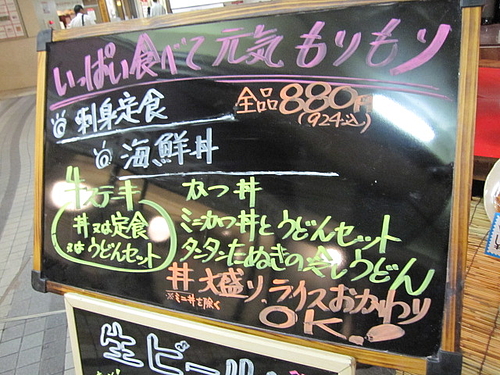 いっぱい食べて元気もりもり
刺身定食
全品880円
(924込)
海鮮丼
牛ステーキ
丼又は定食
又はうどんセット
かつ丼
ミニかつ丼とうどんセット
タンタンたぬきの冷しうどん
丼大盛り、ライスおかわり
※ミニ丼を除く
OK!
生ビール